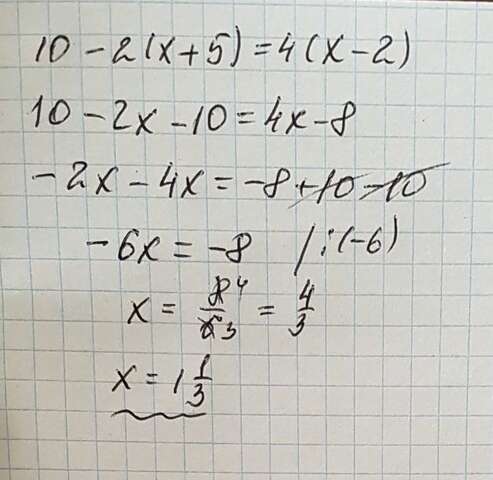 10 - 2(x + 5) = 4(x - 2)
10 - 2x - 10 = 4x - 8
- 2x - 4x = -8 + 10 - 10
- 6x = -8 / : (-6)
x = 8 4 / 6 3 = 4/3
x = 1 1/3